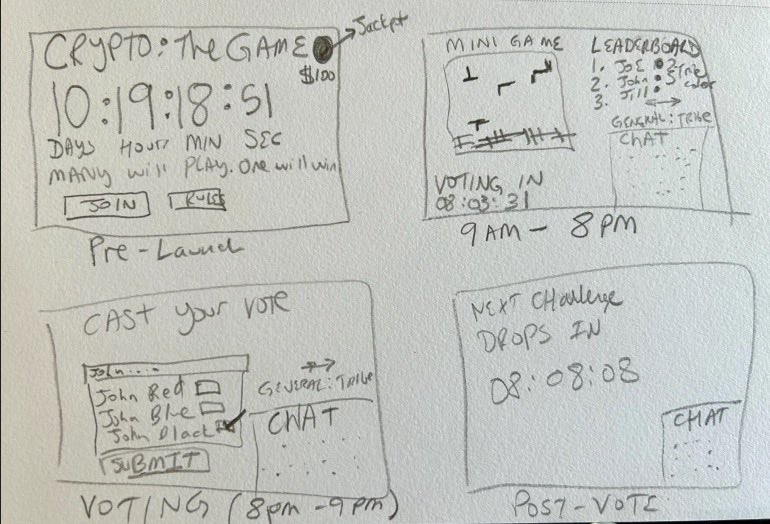 CRYPTO: THE GAME
Jackpot
$100
10:19:18:51
DAYS HOURS MIN SEC
MANY will PLAY. One will win
JOIN RULES
Pre-Launch
MINI GAME
LEADERBOARD
1. JOE
2. John
3. Jill
Tribe
color
GENERAL: TRIBE
CHAT
VOTING IN
08:03:31
9AM - 8PM
CAST your VOTE
John...
John Red
John Blue
John Black
SUBMIT
GENERAL: TRIBE
CHAT
VOTING (8pm - 9pm)
NEXT CHallenge
DROPS IN
08:08:08
CHAT
POST-VOTE